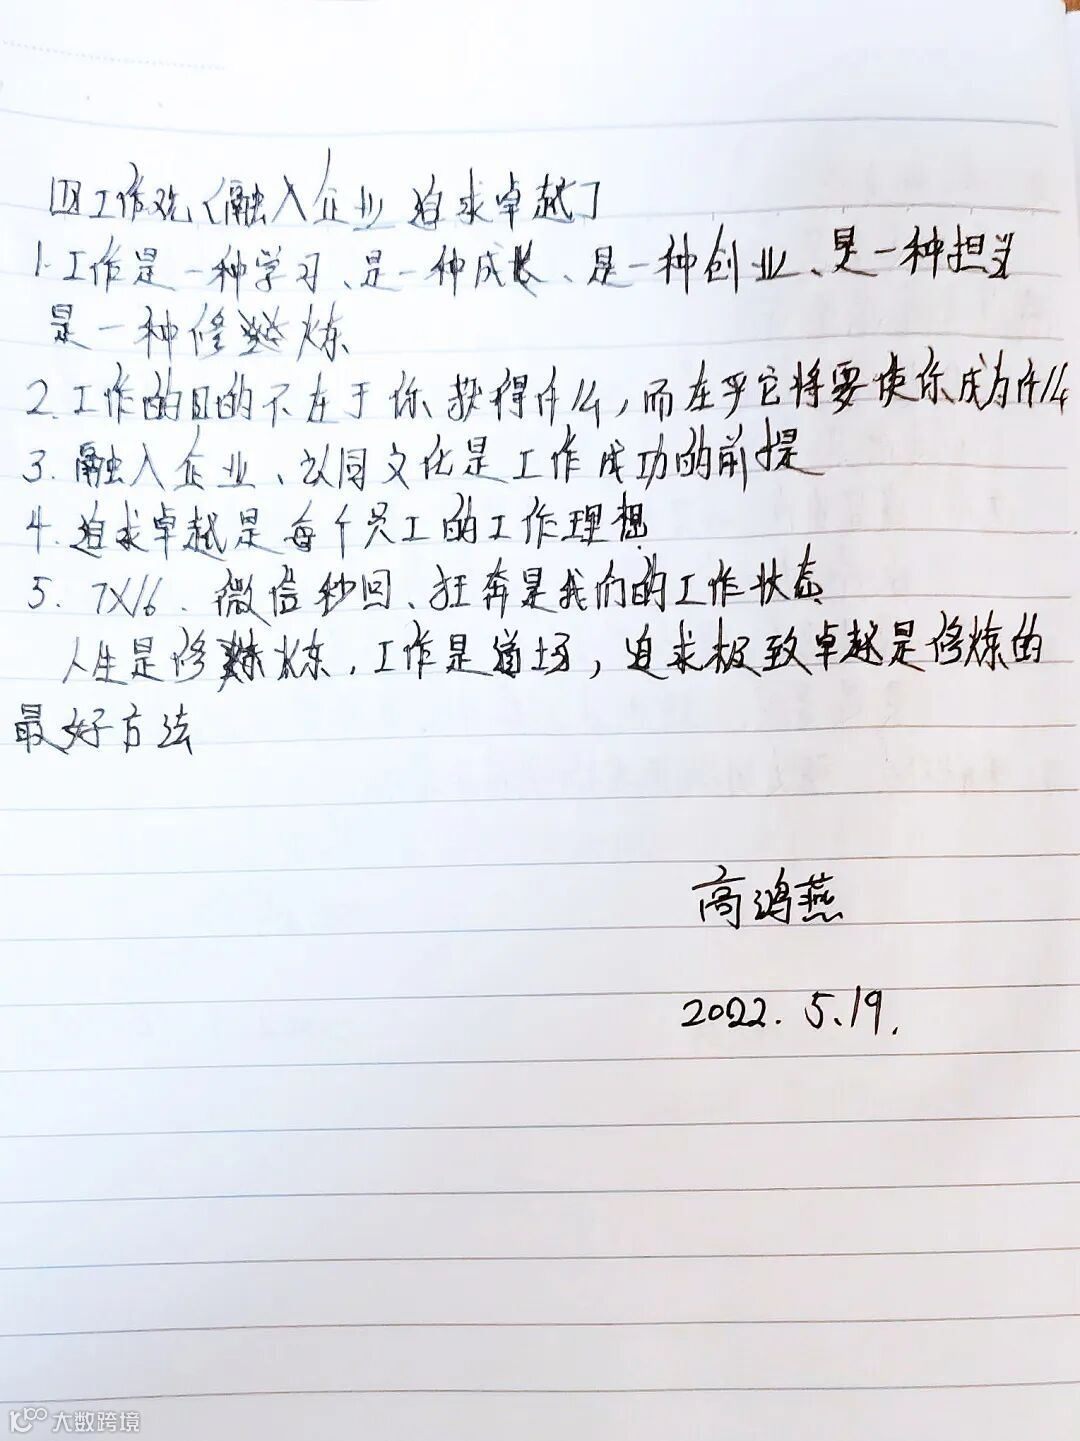 四工作观〈融入企业 追求卓越〉
1.工作是一种学习、是一种成长、是一种创业、是一种担当
是一种修炼
2.工作的目的不在于你获得什么,而在乎它将要使你成为什么
3.融入企业、认同文化是工作成功的前提
4.追求卓越是每个员工的工作理想.
5.7X16.微信秒回、狂奔是我们的工作状态
人生是修炼,工作是道场,追求极致卓越是修炼的
最好方法
高鸿燕
2022.5.19.
大数跨境